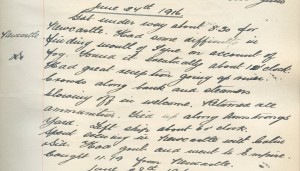 June 24th 1916.
Got under way about 8.30 for
Newcastle. Had some difficulty in
finding mouth of Tyne on account of
fog. Found it eventually about 12 o'clock.
Had great reception going up river.
Crowds along bank and steamers
blowing off in welcome. Returned all
ammunition. Tied up along Armstrongs
Yard. Left ship about 6 o'clock.
Spent evening in Newcastle with
& Sid. Had and went to Empire.
Caught 11.50 from Newcastle.
Newcastle
June